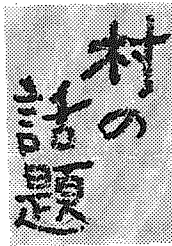 村の
話題